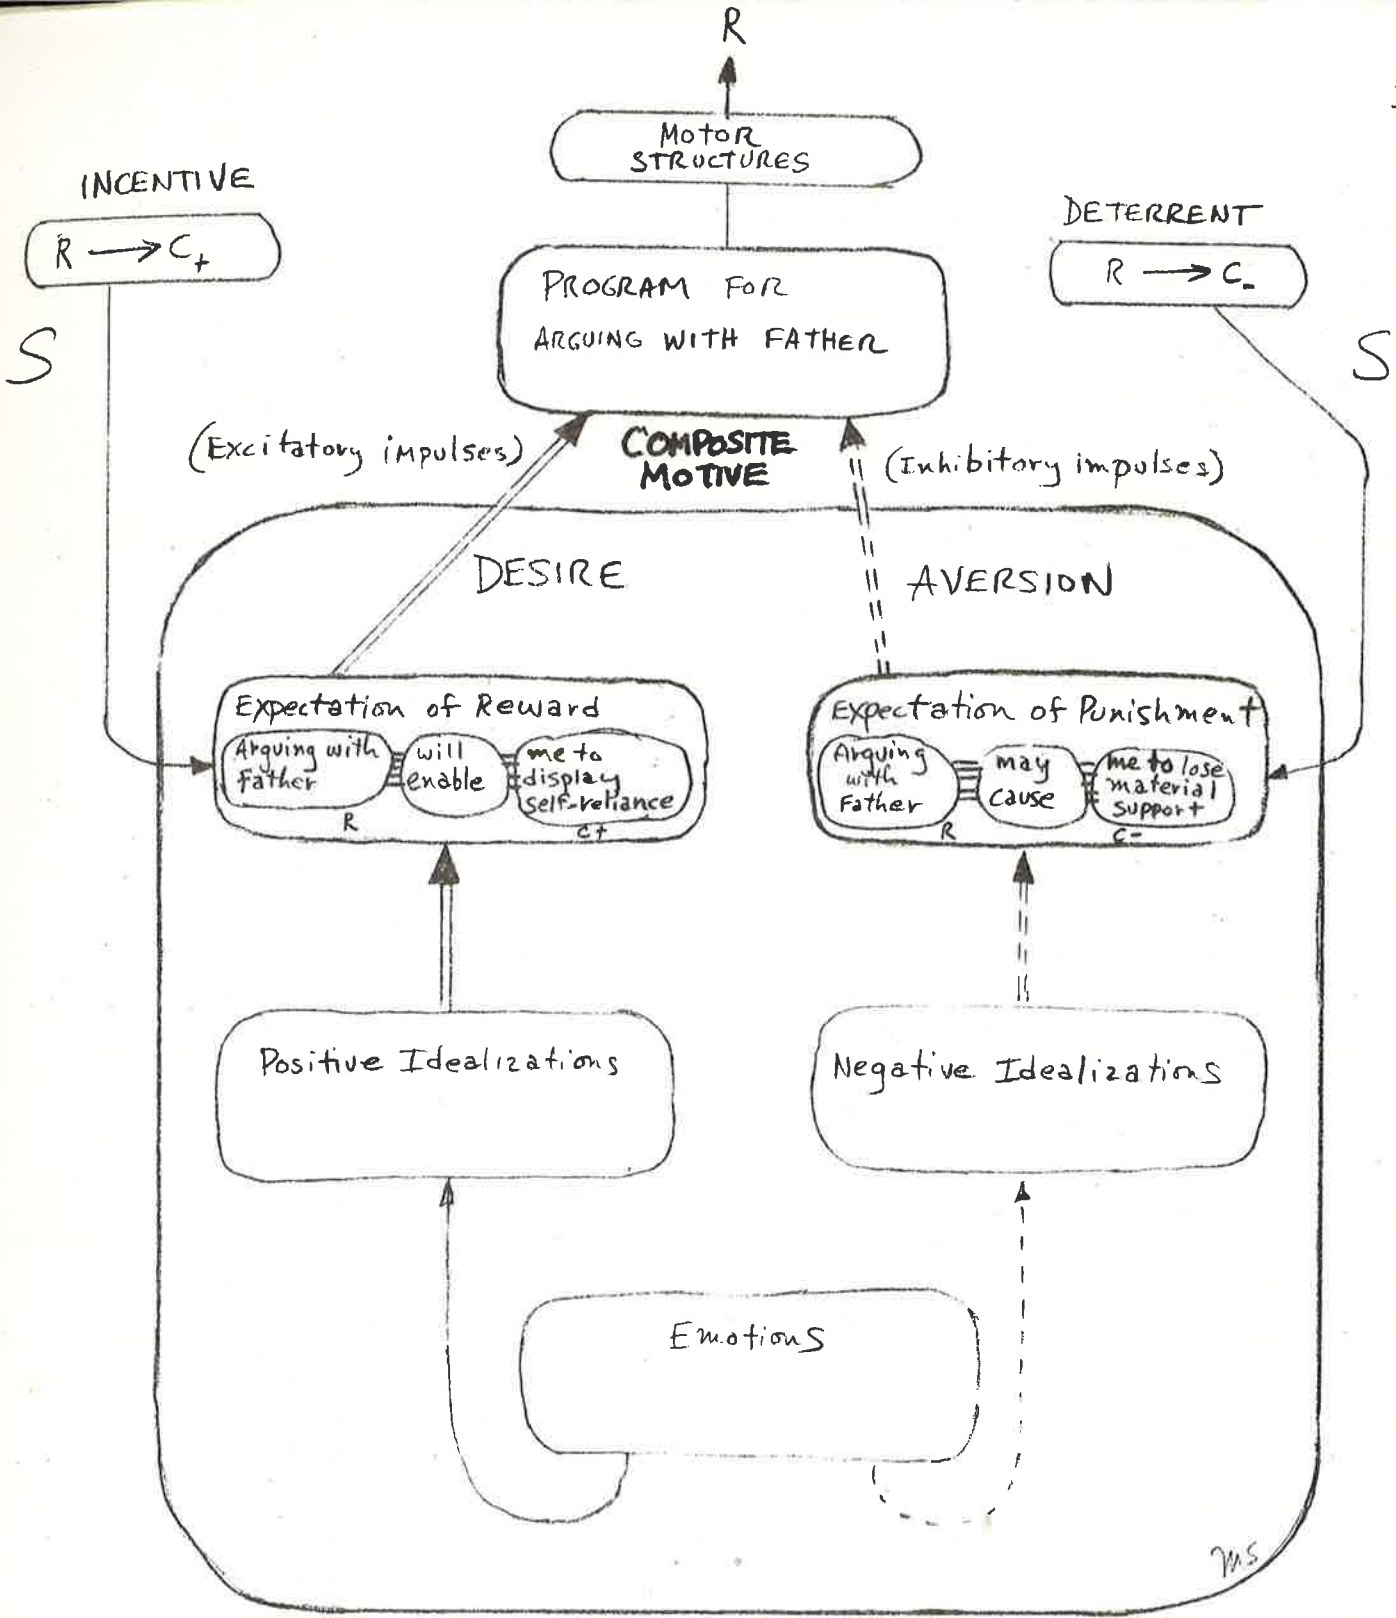 R
MOTOR
STRUCTURES
INCENTIVE
R → C+
DETERRENT
R → C-
S
S
PROGRAM FOR
ARGUING WITH FATHER
(Excitatory impulses)
COMPOSITE
MOTIVE
(Inhibitory impulses)
DESIRE
AVERSION
Expectation of Reward
Arguing with
Father
will
enable
me to
display
self-reliance
R
C+
Expectation of Punishment
Arguing
with
Father
may
cause
me to lose
material
support
R
C-
Positive Idealizations
Negative Idealizations
Emotions
MS